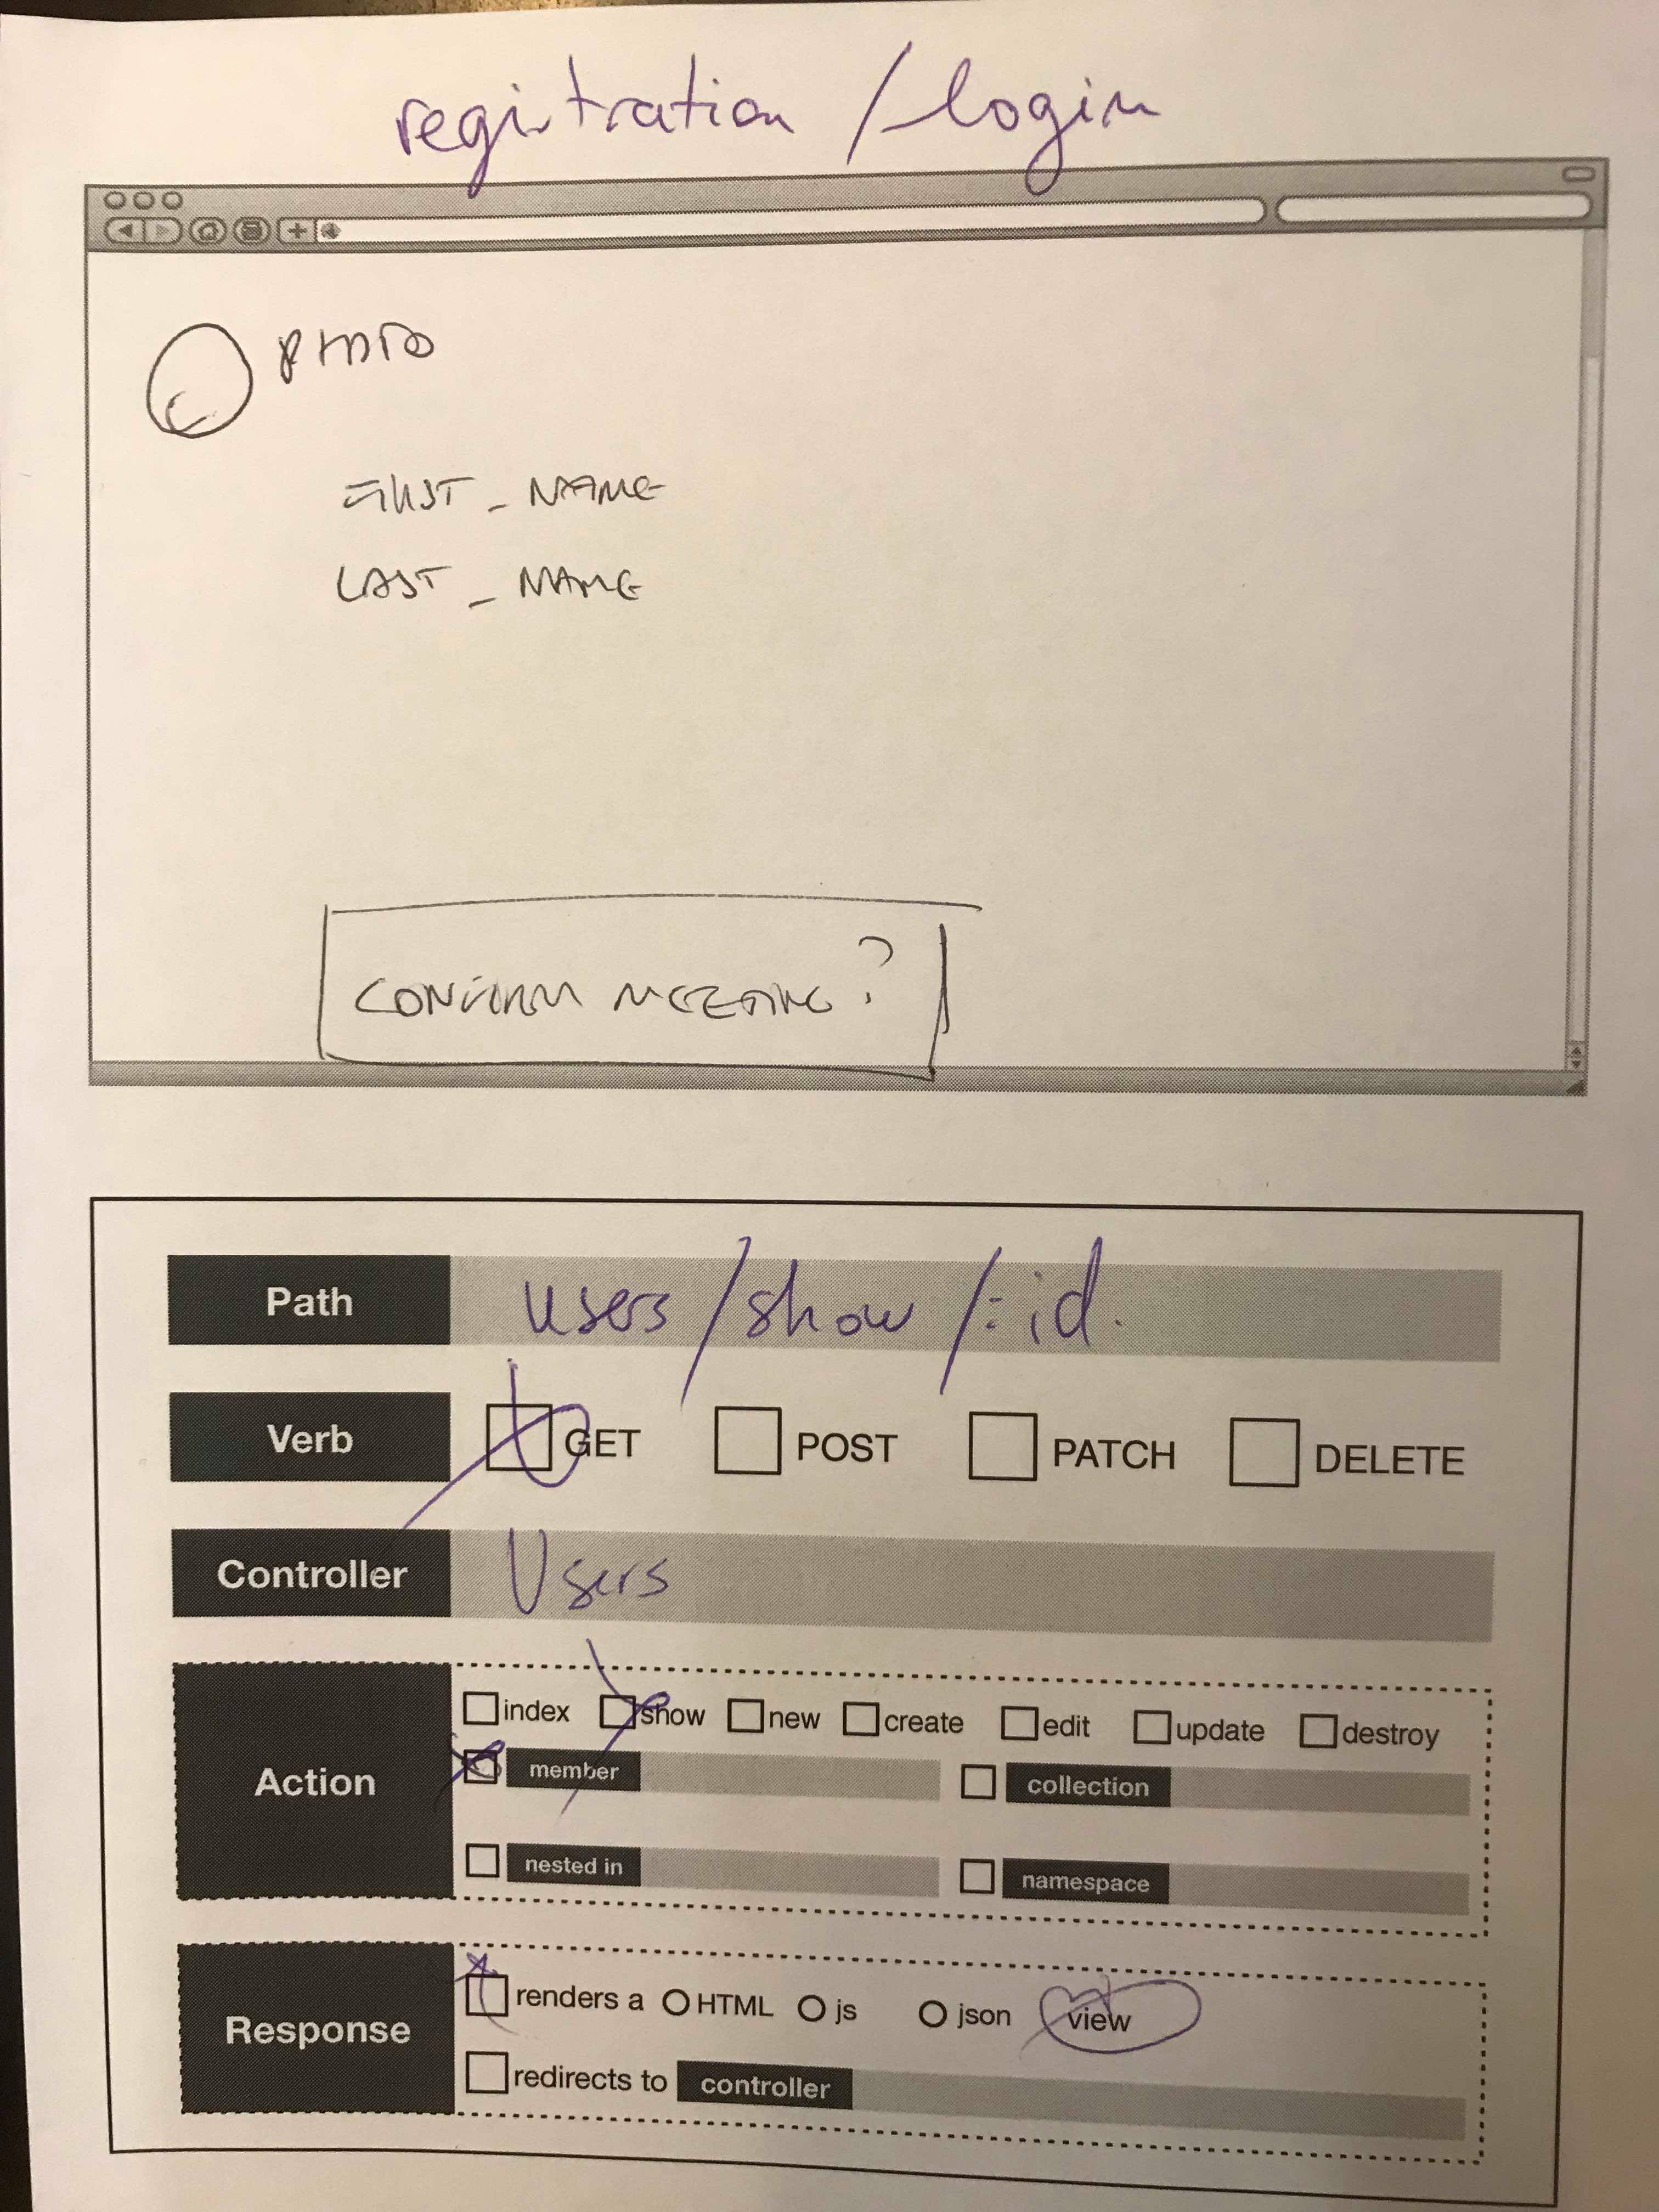 registration / login
PHOTO
FIRST _ NAME
LAST _ NAME
CONFIRM MEETING ?
Path users / show / :id.
Verb GET POST PATCH DELETE
Controller Users
Action
index show new create edit update destroy
member collection
nested in namespace
Response
renders a HTML js json view
redirects to controller